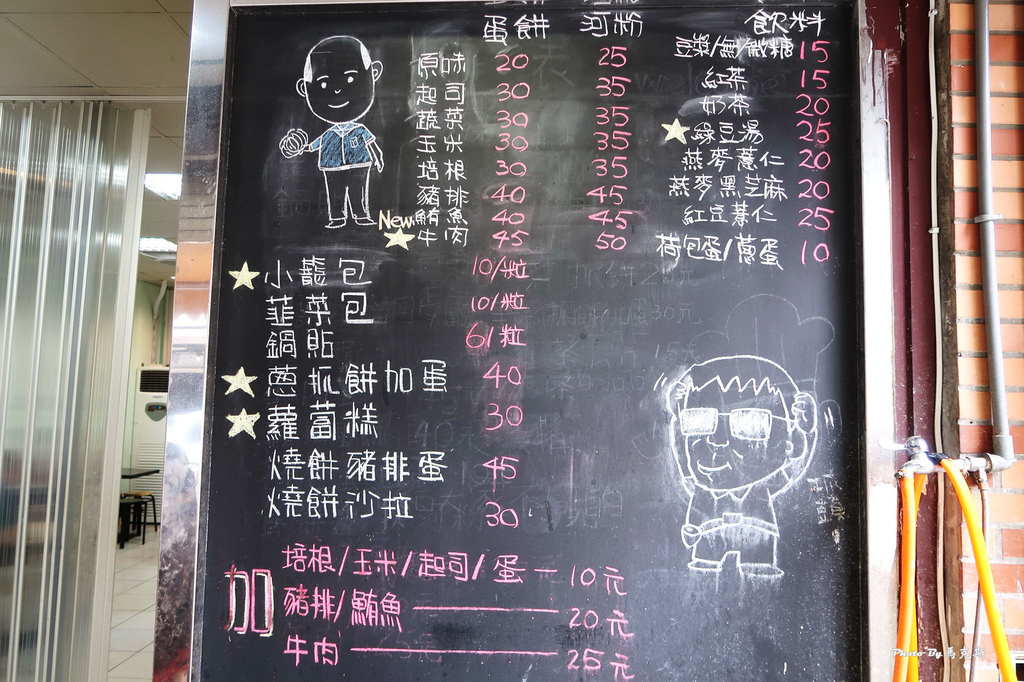 蛋餅 河粉 飲料
原味 20 25
起司 30 35
蔬菜 30 35
玉米 30 35
培根 30 35
豬排 40 45
New 鮪魚 40 45
牛肉 45 50
豆漿/無/微糖 15
紅茶 15
奶茶 20
綠豆湯 25
燕麥薏仁 20
燕麥黑芝麻 20
紅豆薏仁 25
荷包蛋/蔥蛋 10
小籠包 10/粒
韮菜包 10/粒
鍋貼 6/粒
蔥抓餅加蛋 40
蘿蔔糕 30
燒餅豬排蛋 45
燒餅沙拉 30
加
培根/玉米/起司/蛋 — 10元
豬排/鮪魚 — 20元
牛肉 — 25元
Photo By 馬克